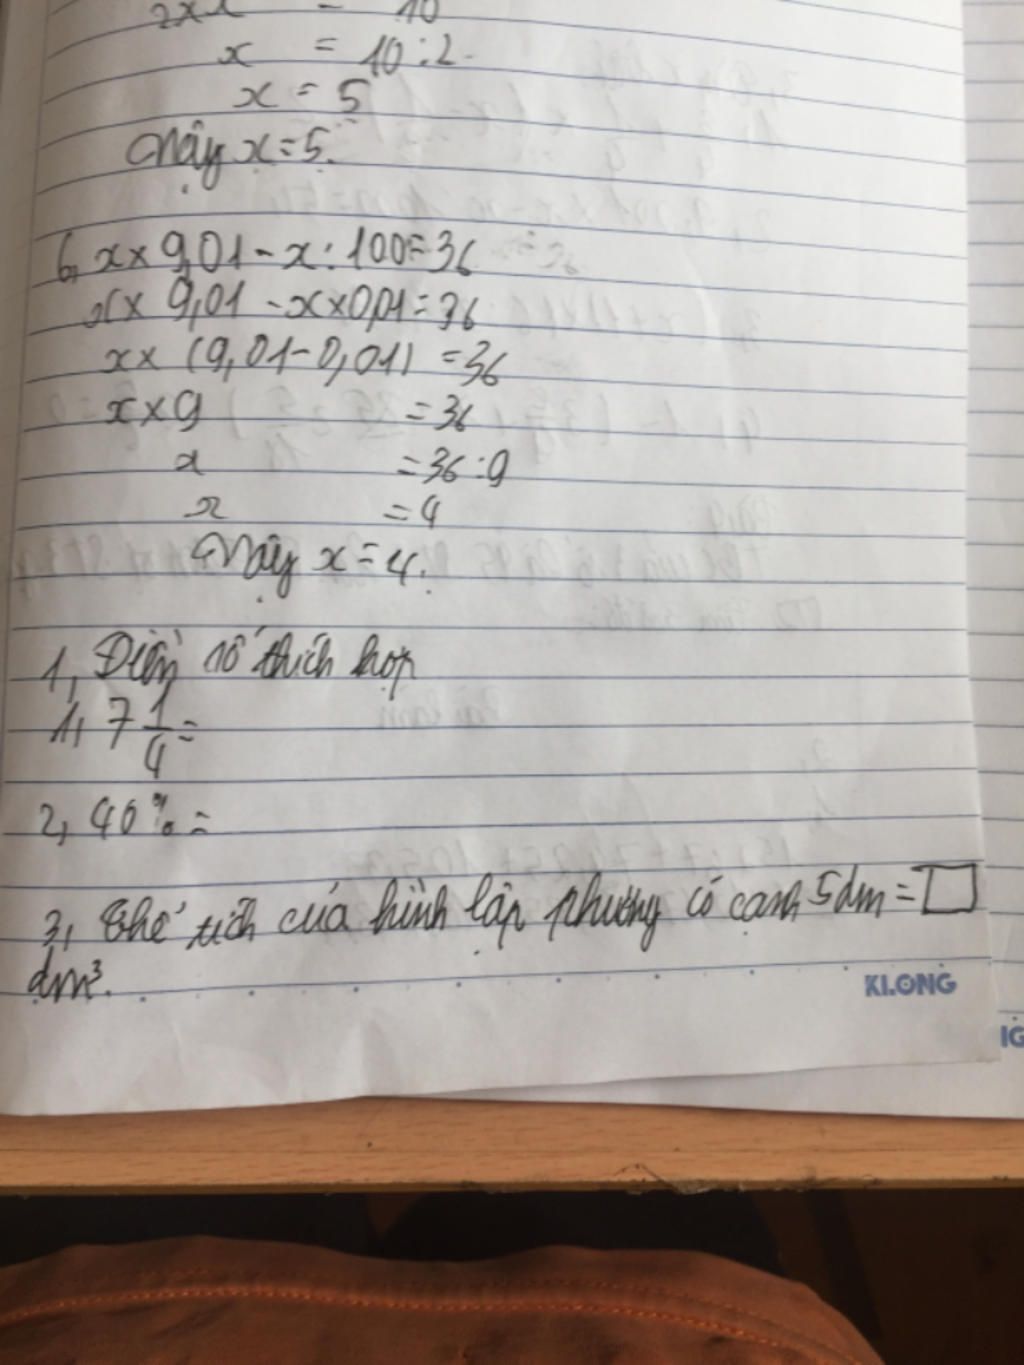 2xx = 10
x = 10:2.
x = 5
Vậy x=5.
6, x x 9,01 - x : 100=36
x x 9,01 - x x 0,01=36
x x (9,01-0,01) =36
x x 9 =36
x =36:9
x =4
Vậy x=4.
1, Điền số thích hợp
1, 7 1/4 =
2, 40% =
3, Thể tích của hình lập phương có cạnh 5dm=□
dm³.
KLONG